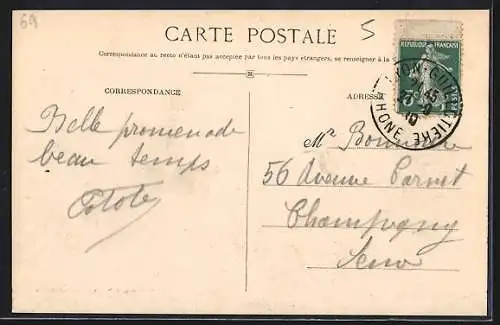 69
CARTE POSTALE
5
Correspondance au recto n'étant pas acceptée par tous les pays étrangers, se renseigner à la
CORRESPONDANCE
ADRESSE
RÉPUBLIQUE FRANÇAISE
5c
LYON-GUILLOTIERE
RHONE
45
10
Belle promenade
beau temps
Totote
Mr
56 Avenue Carnot
Champigny
Seine